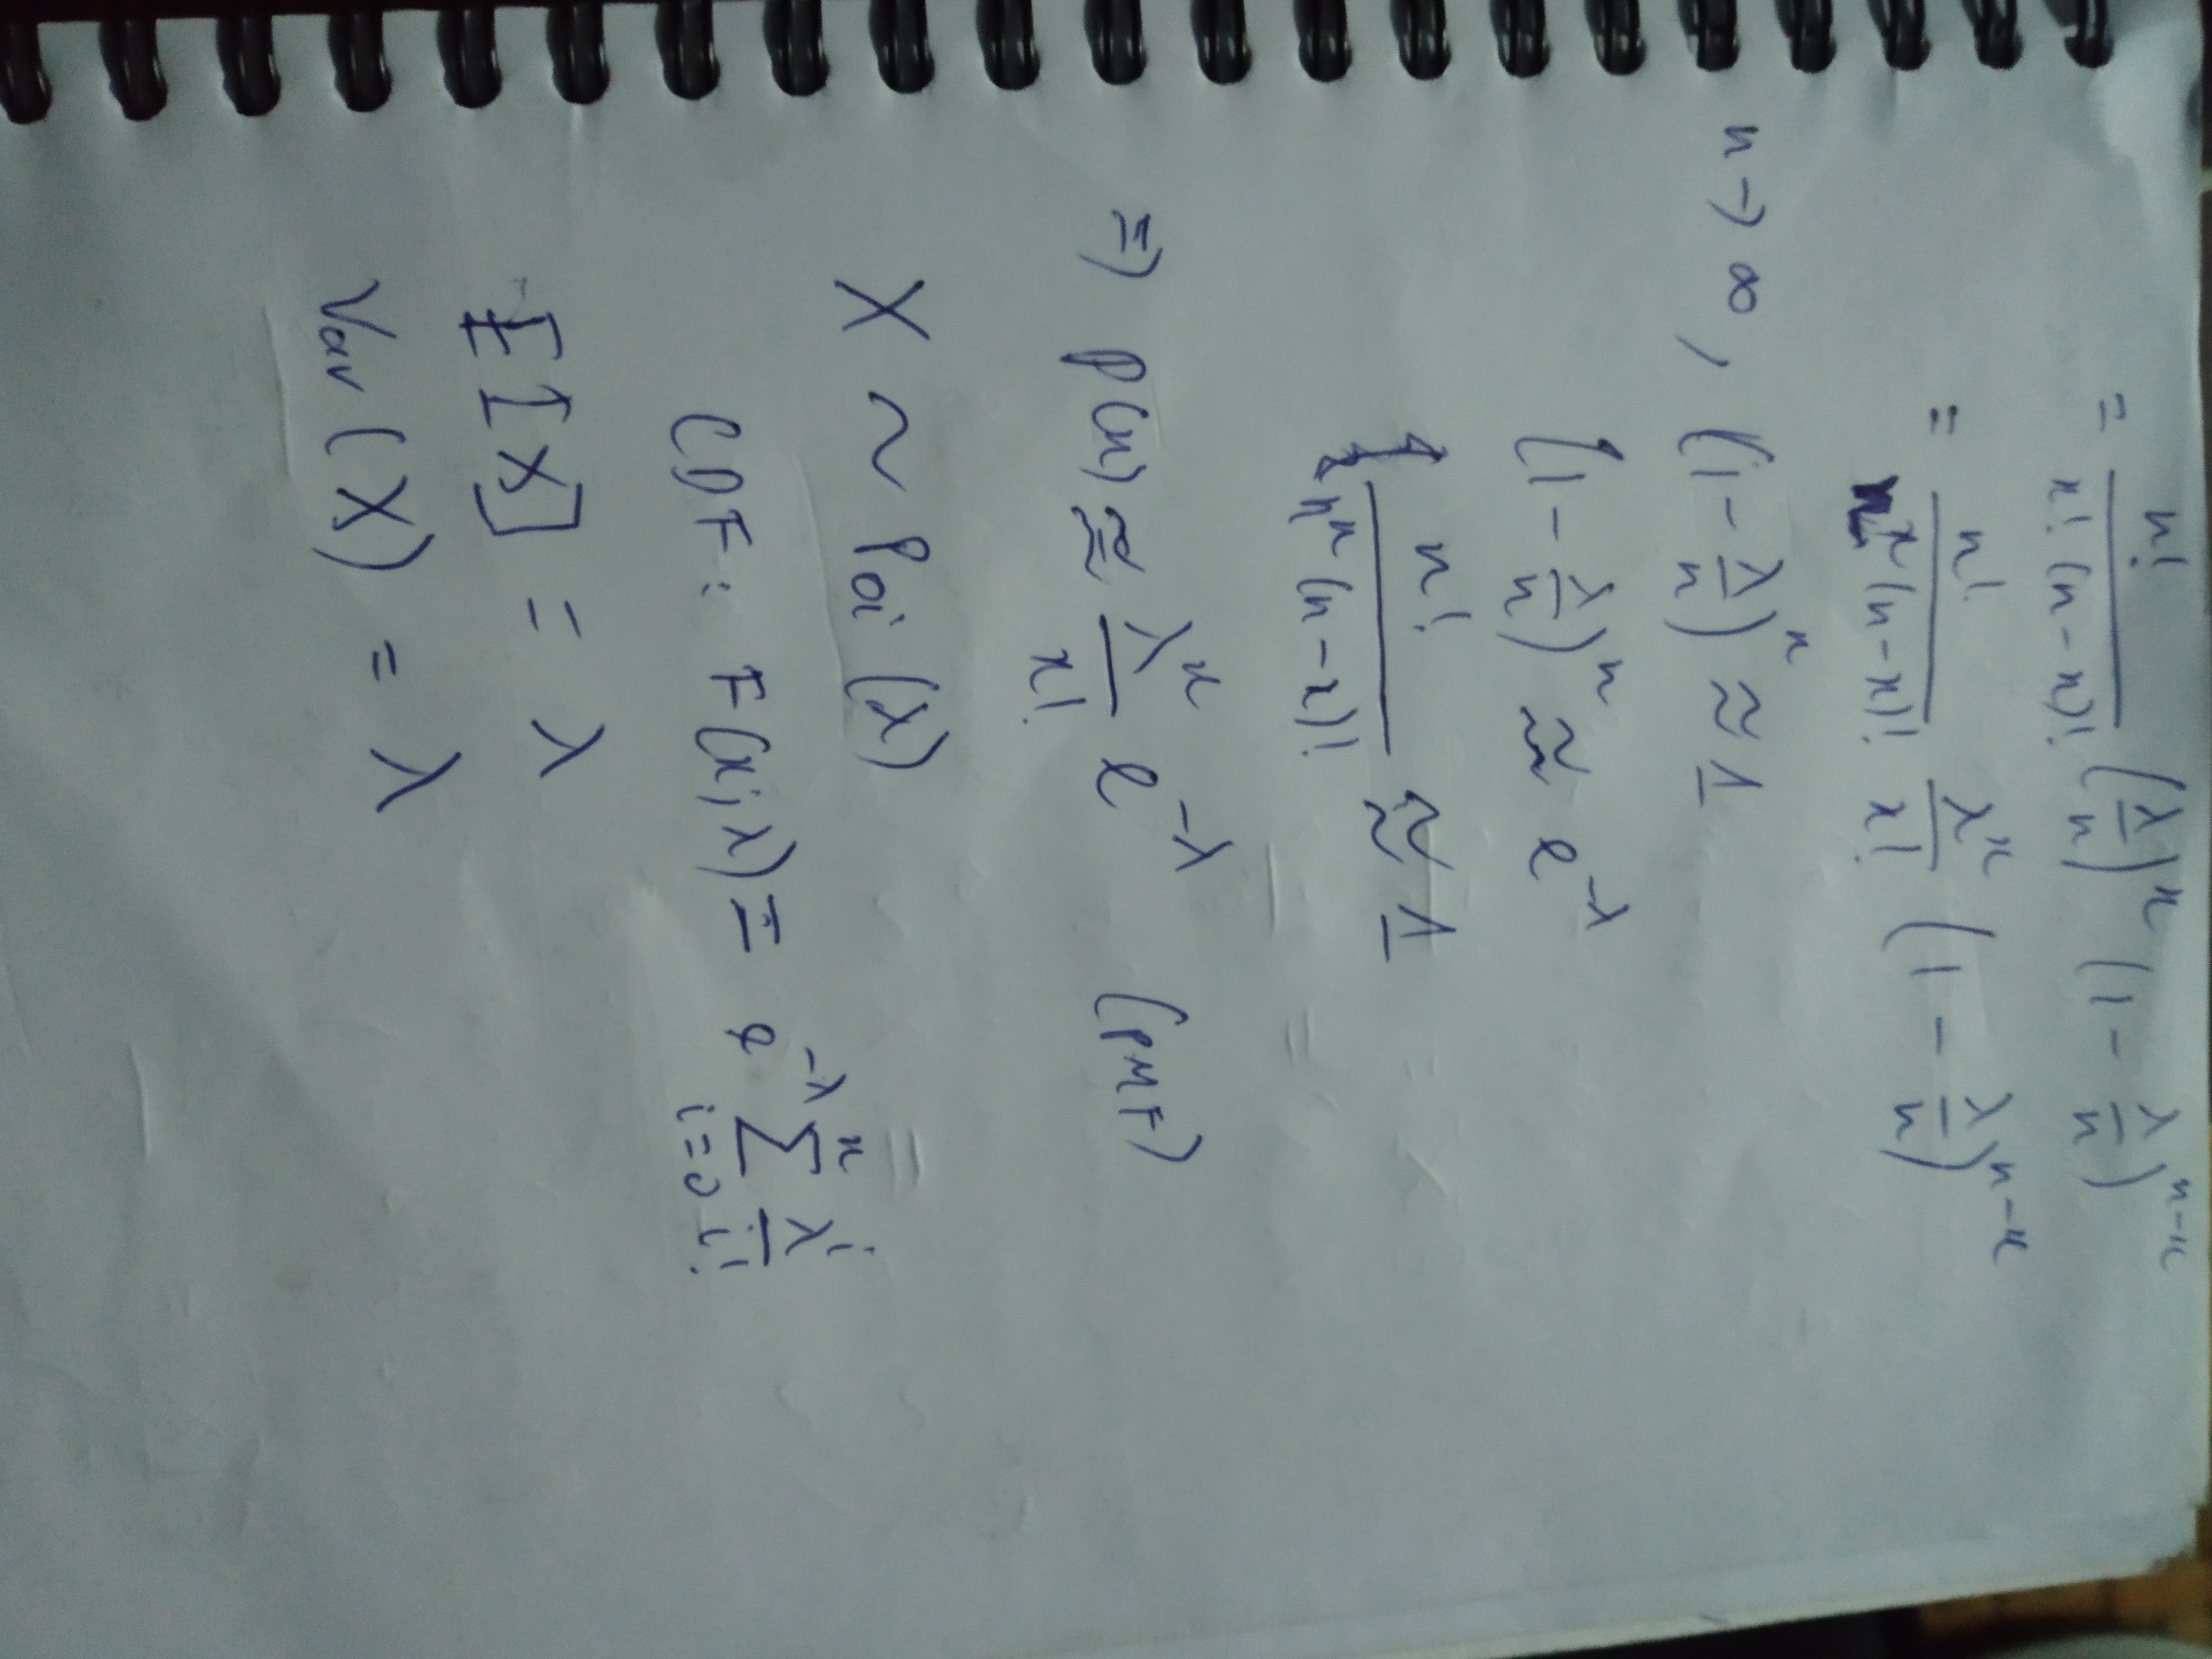 = n!/(x!(n-x)!) (λ/n)^x (1-λ/n)^(n-x)
= n!/(n^x(n-x)!) λ^x/x! (1-λ/n)^(n-x)
n→∞, (1-λ/n)^x ≈ 1
(1-λ/n)^n ≈ e^(-λ)
n!/(n^x(n-x)!) ≈ 1
⇒ P(x) ≈ λ^x/x! e^(-λ) (PMF)
X ~ Poi(λ)
CDF: F(x;λ) = e^(-λ) Σ_(i=0)^x λ^i/i!
E[X] = λ
Var(X) = λ